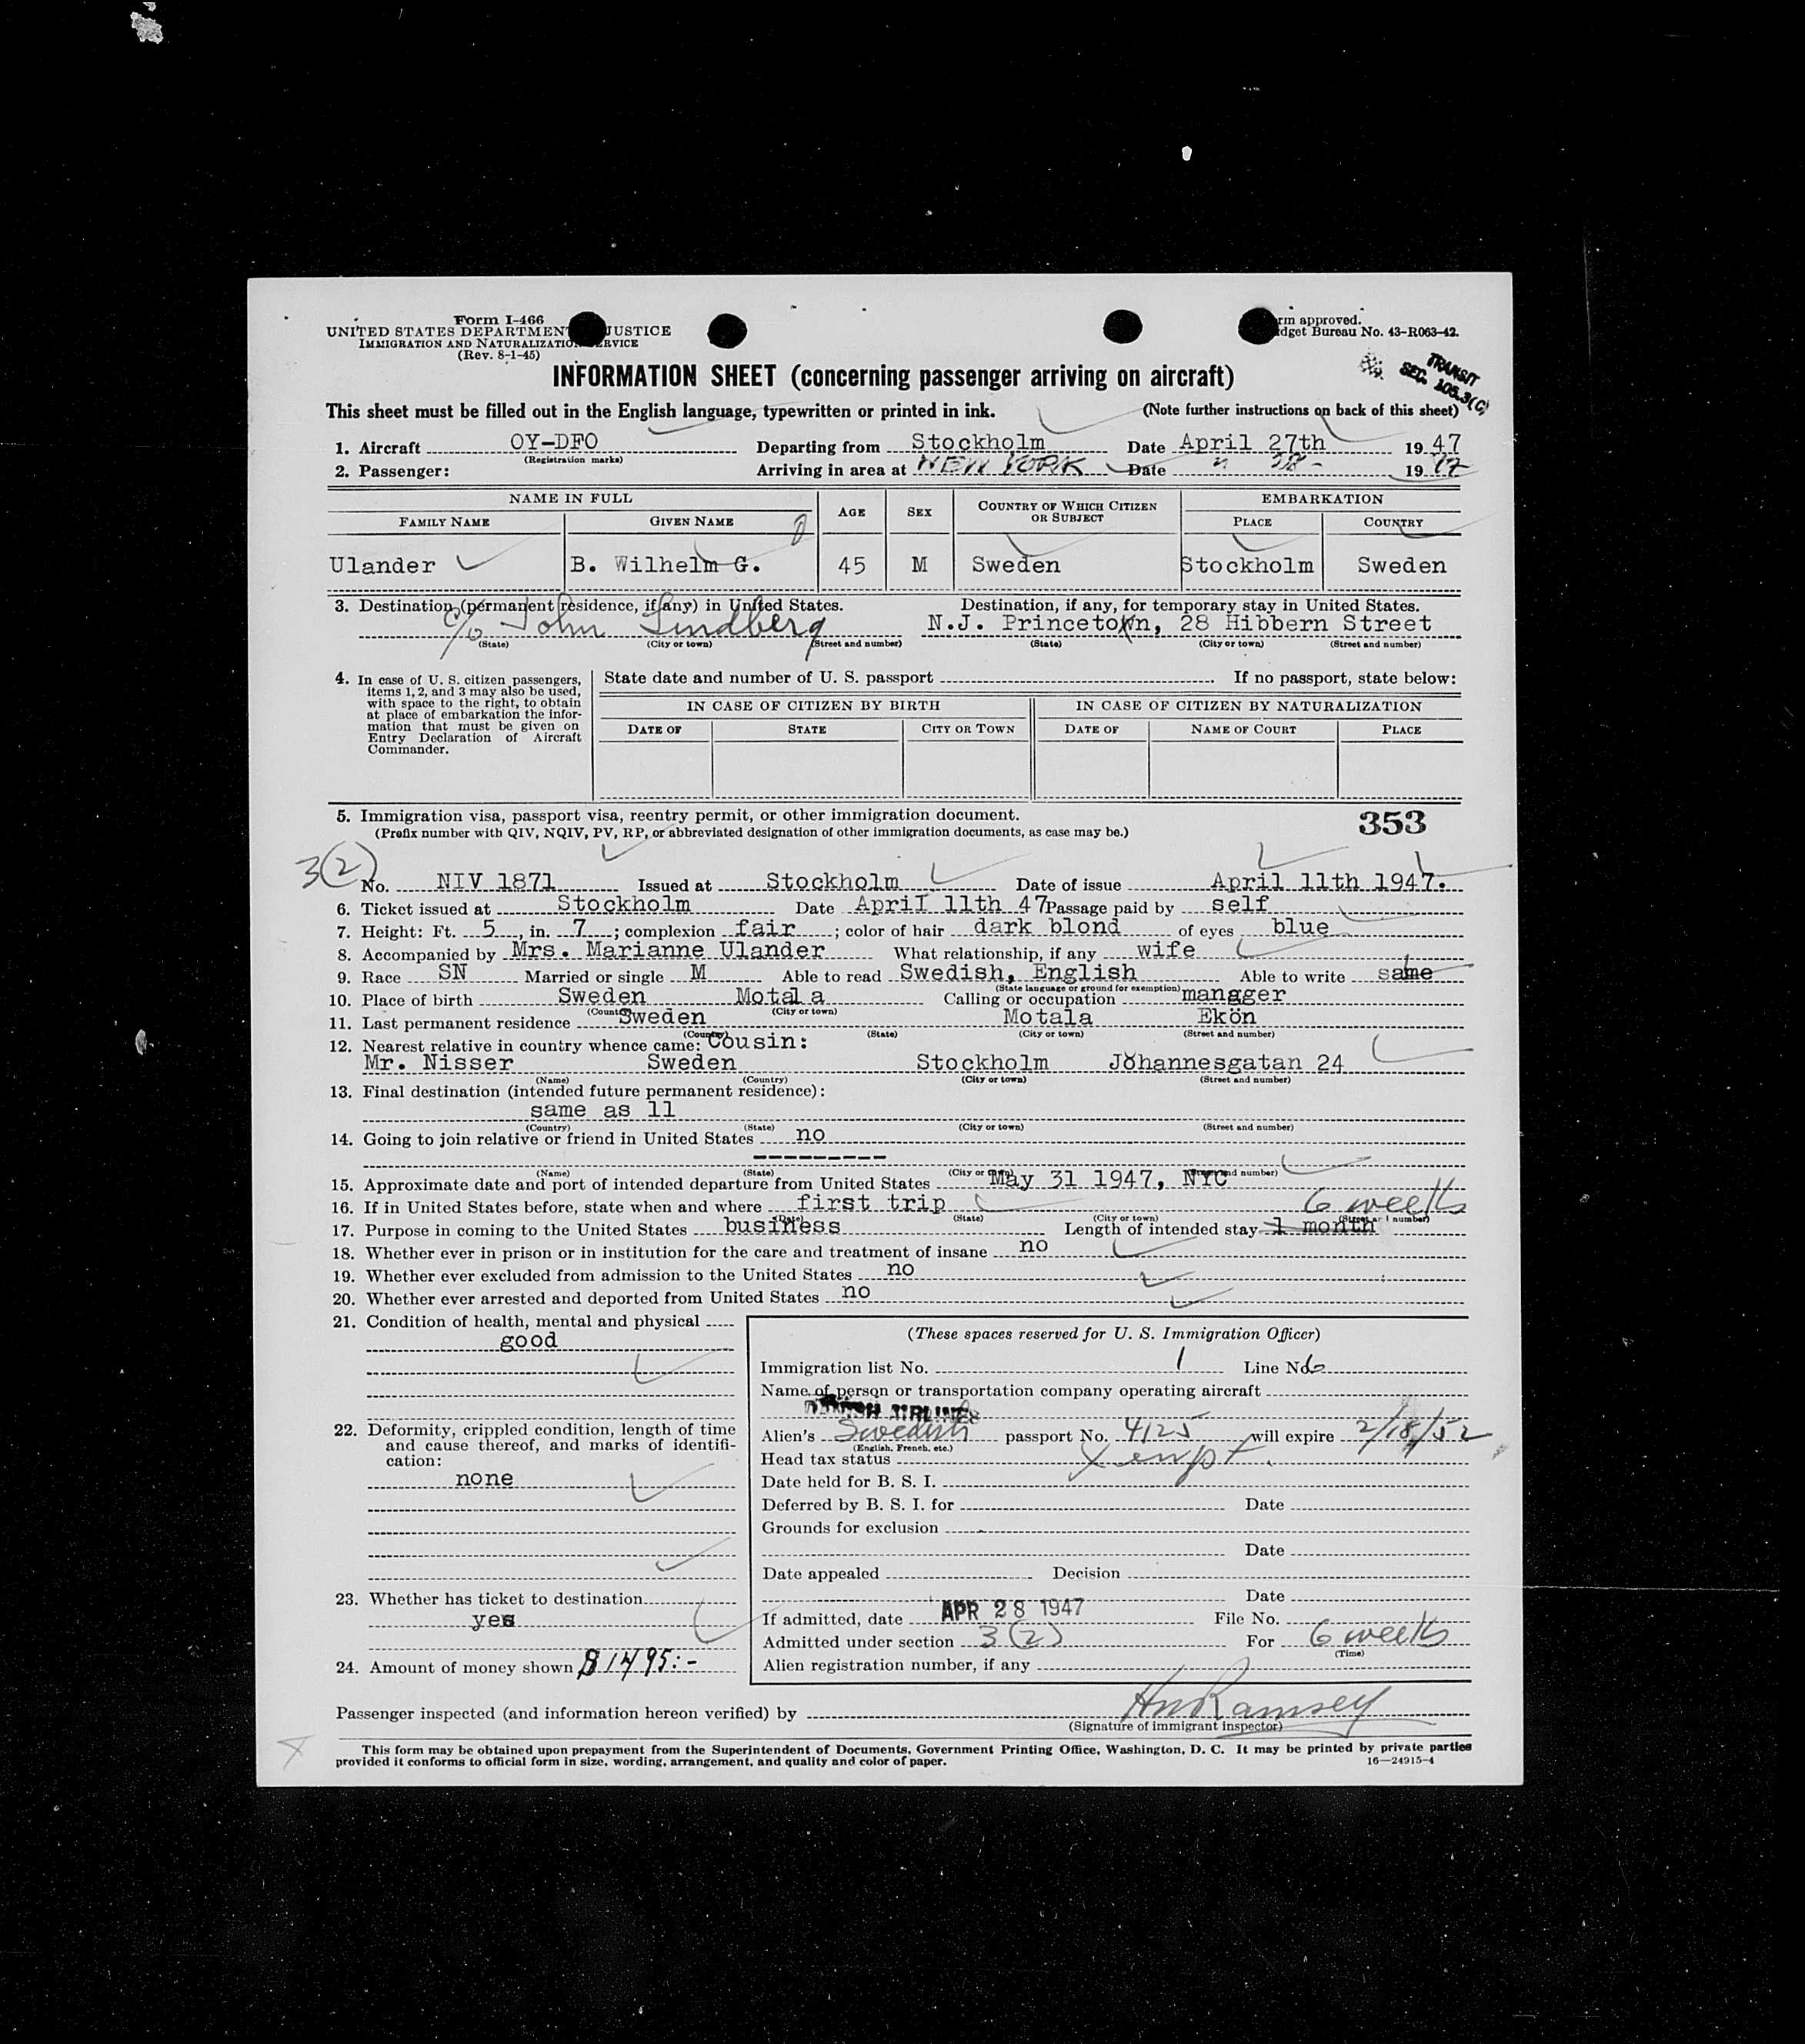 Form I-466
UNITED STATES DEPARTMENT JUSTICE
IMMIGRATION AND NATURALIZATION SERVICE
(Rev. 8-1-45)
rm approved.
dget Bureau No. 43-R063-42.
TRANSIT
SEC. 105.3(C)
INFORMATION SHEET (concerning passenger arriving on aircraft)
This sheet must be filled out in the English language, typewritten or printed in ink. (Note further instructions on back of this sheet)
1. Aircraft OY-DFO Departing from Stockholm Date April 27th 1947
(Registration marks)
2. Passenger: Arriving in area at NEW YORK Date " 28 - 1947
NAME IN FULL AGE SEX COUNTRY OF WHICH CITIZEN OR SUBJECT EMBARKATION
FAMILY NAME GIVEN NAME PLACE COUNTRY
Ulander B. Wilhelm G. 45 M Sweden Stockholm Sweden
3. Destination (permanent residence, if any) in United States. Destination, if any, for temporary stay in United States.
c/o John Lindberg N.J. Princetoxn, 28 Hibbern Street
(State) (City or town) (Street and number) (State) (City or town) (Street and number)
4. In case of U. S. citizen passengers, items 1, 2, and 3 may also be used, with space to the right, to obtain at place of embarkation the information that must be given on Entry Declaration of Aircraft Commander.
State date and number of U. S. passport If no passport, state below:
IN CASE OF CITIZEN BY BIRTH IN CASE OF CITIZEN BY NATURALIZATION
DATE OF STATE CITY OR TOWN DATE OF NAME OF COURT PLACE
5. Immigration visa, passport visa, reentry permit, or other immigration document. 353
(Prefix number with QIV, NQIV, PV, RP, or abbreviated designation of other immigration documents, as case may be.)
3(2)
No. NIV 1871 Issued at Stockholm Date of issue April 11th 1947.
6. Ticket issued at Stockholm Date April 11th 47 Passage paid by self
7. Height: Ft. 5, in. 7; complexion fair; color of hair dark blond of eyes blue
8. Accompanied by Mrs. Marianne Ulander What relationship, if any wife
9. Race SN Married or single M Able to read Swedish, English Able to write same
(State language or ground for exemption)
10. Place of birth Sweden Motala Calling or occupation manager
(Country) (City or town)
11. Last permanent residence Sweden Motala Ekön
(Country) (State) (City or town) (Street and number)
12. Nearest relative in country whence came: Cousin:
Mr. Nisser Sweden Stockholm Johannesgatan 24
(Name) (Country) (City or town) (Street and number)
13. Final destination (intended future permanent residence):
same as 11
(Country) (State) (City or town) (Street and number)
14. Going to join relative or friend in United States no
---------
(Name) (State) (City or town) (Street and number)
15. Approximate date and port of intended departure from United States May 31 1947, NYC
16. If in United States before, state when and where first trip 6 weeks
(Date) (State) (City or town) (Street and number)
17. Purpose in coming to the United States business Length of intended stay 1 month
18. Whether ever in prison or in institution for the care and treatment of insane no
19. Whether ever excluded from admission to the United States no
20. Whether ever arrested and deported from United States no
21. Condition of health, mental and physical
good
22. Deformity, crippled condition, length of time and cause thereof, and marks of identification:
none
23. Whether has ticket to destination
yes
24. Amount of money shown $1495:-
(These spaces reserved for U. S. Immigration Officer)
Immigration list No. 1 Line No. 6
Name of person or transportation company operating aircraft
DANISH AIRLINES
Alien's Swedish passport No. 4125 will expire 2/18/52
(English, French, etc.)
Head tax status Xempt.
Date held for B. S. I.
Deferred by B. S. I. for Date
Grounds for exclusion
Date
Date appealed Decision
Date
If admitted, date APR 28 1947 File No.
Admitted under section 3(2) For 6 weeks
(Time)
Alien registration number, if any
Passenger inspected (and information hereon verified) by HW Ramsey
(Signature of immigrant inspector)
This form may be obtained upon prepayment from the Superintendent of Documents, Government Printing Office, Washington, D. C. It may be printed by private parties
provided it conforms to official form in size, wording, arrangement, and quality and color of paper. 16—24915-4